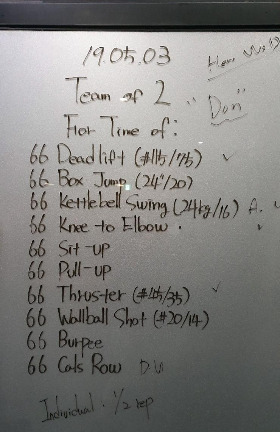 19.05.03
Hero
Team of 2
"Don"
For Time of:
66 Deadlift (#115/75) ✓
66 Box Jump (24"/20)
66 Kettlebell Swing (24kg/16) A.
66 Knee to Elbow.
66 Sit-up
66 Pull-up
66 Thruster (#45/35) ✓
66 Wallball Shot (#20/14)
66 Burpee
66 Cals Row
Individual. 1/2 rep